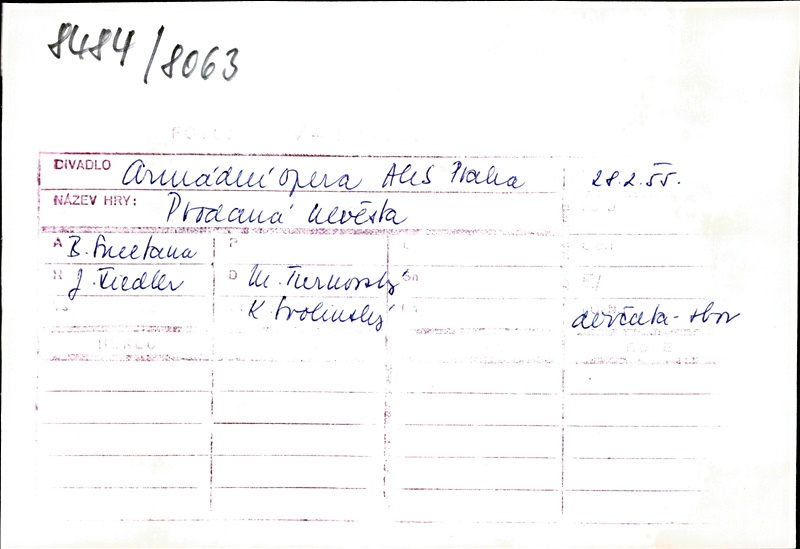 8484/8063
DIVADLO Armádní opera AUS Praha 28.2.55.
NÁZEV HRY: Prodaná nevěsta
A B. Smetana P
R J. Fiedler D M. Turnovský
K. Svolinský děvčata - sbor